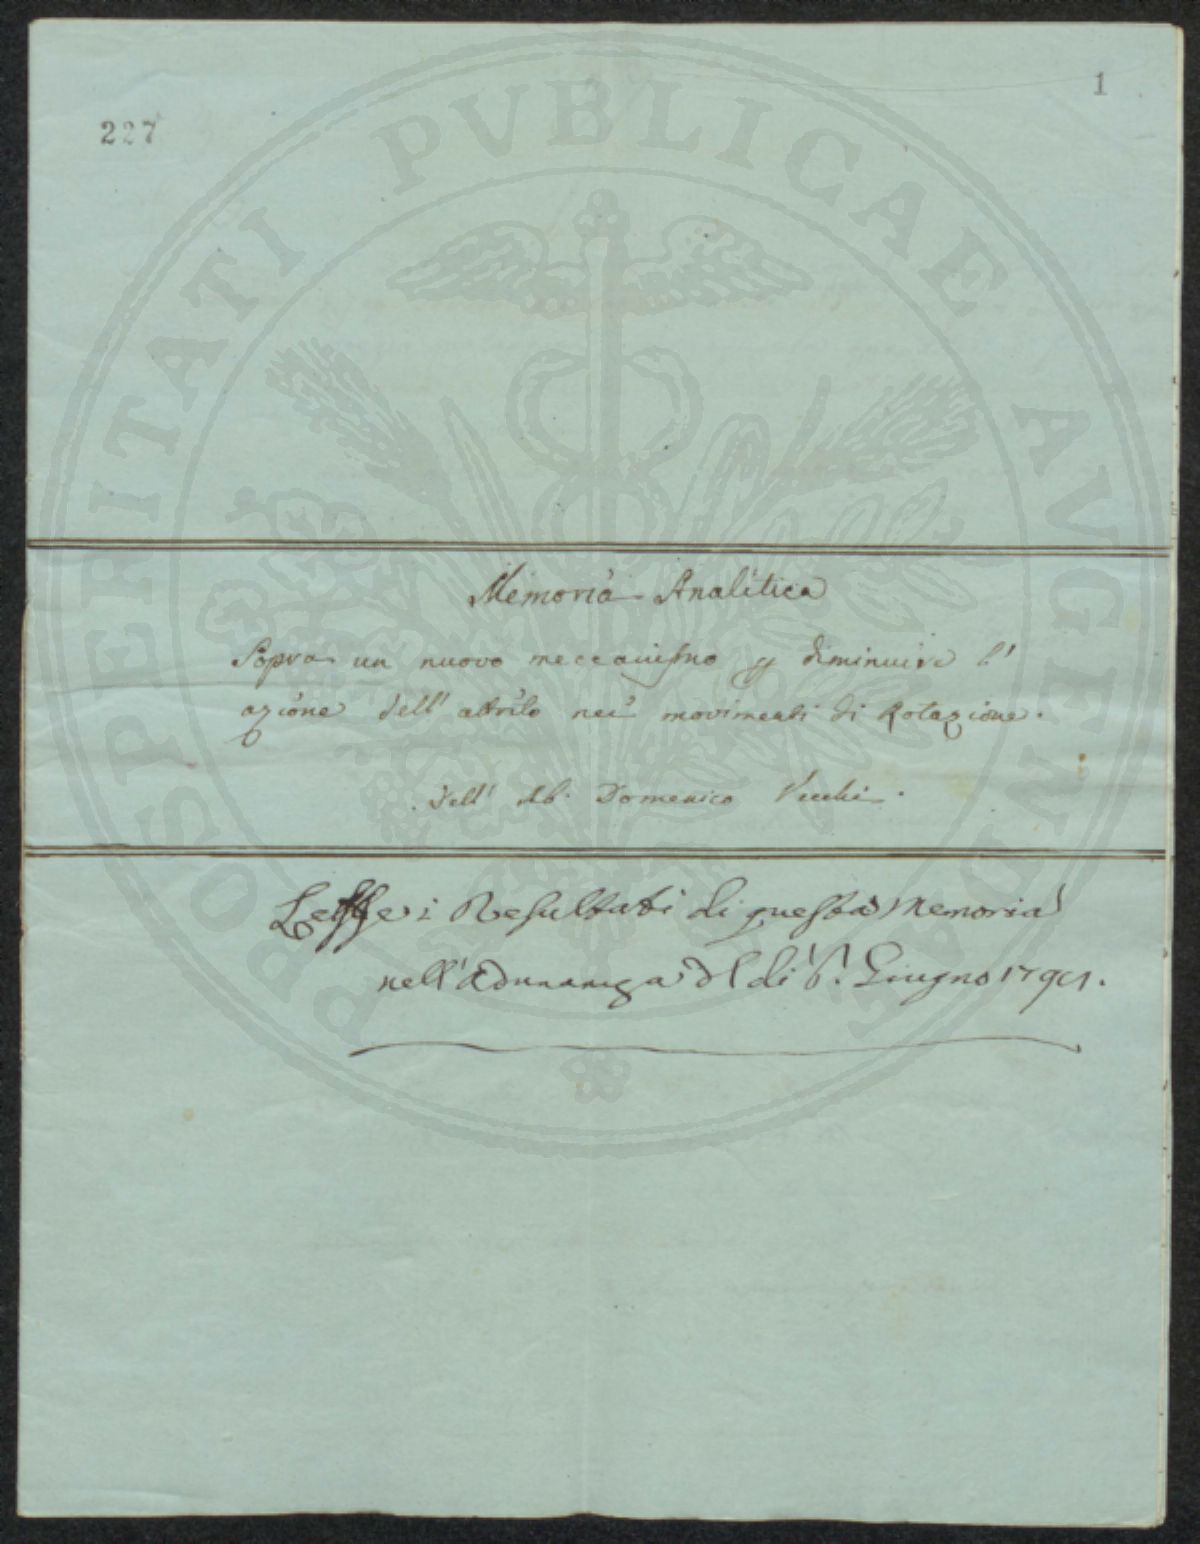 1
227
PROSPERITATI PVBLICAE AVGENDAE
Memoria Analitica
Sopra un nuovo meccanismo p diminuire l'
azione dell' attrito nei movimenti di Rotazione.
dell' Ab. Domenico Vecchi.
Lesse i Resultati di questa Memoria
nell' Adunanza dl dì Giugno